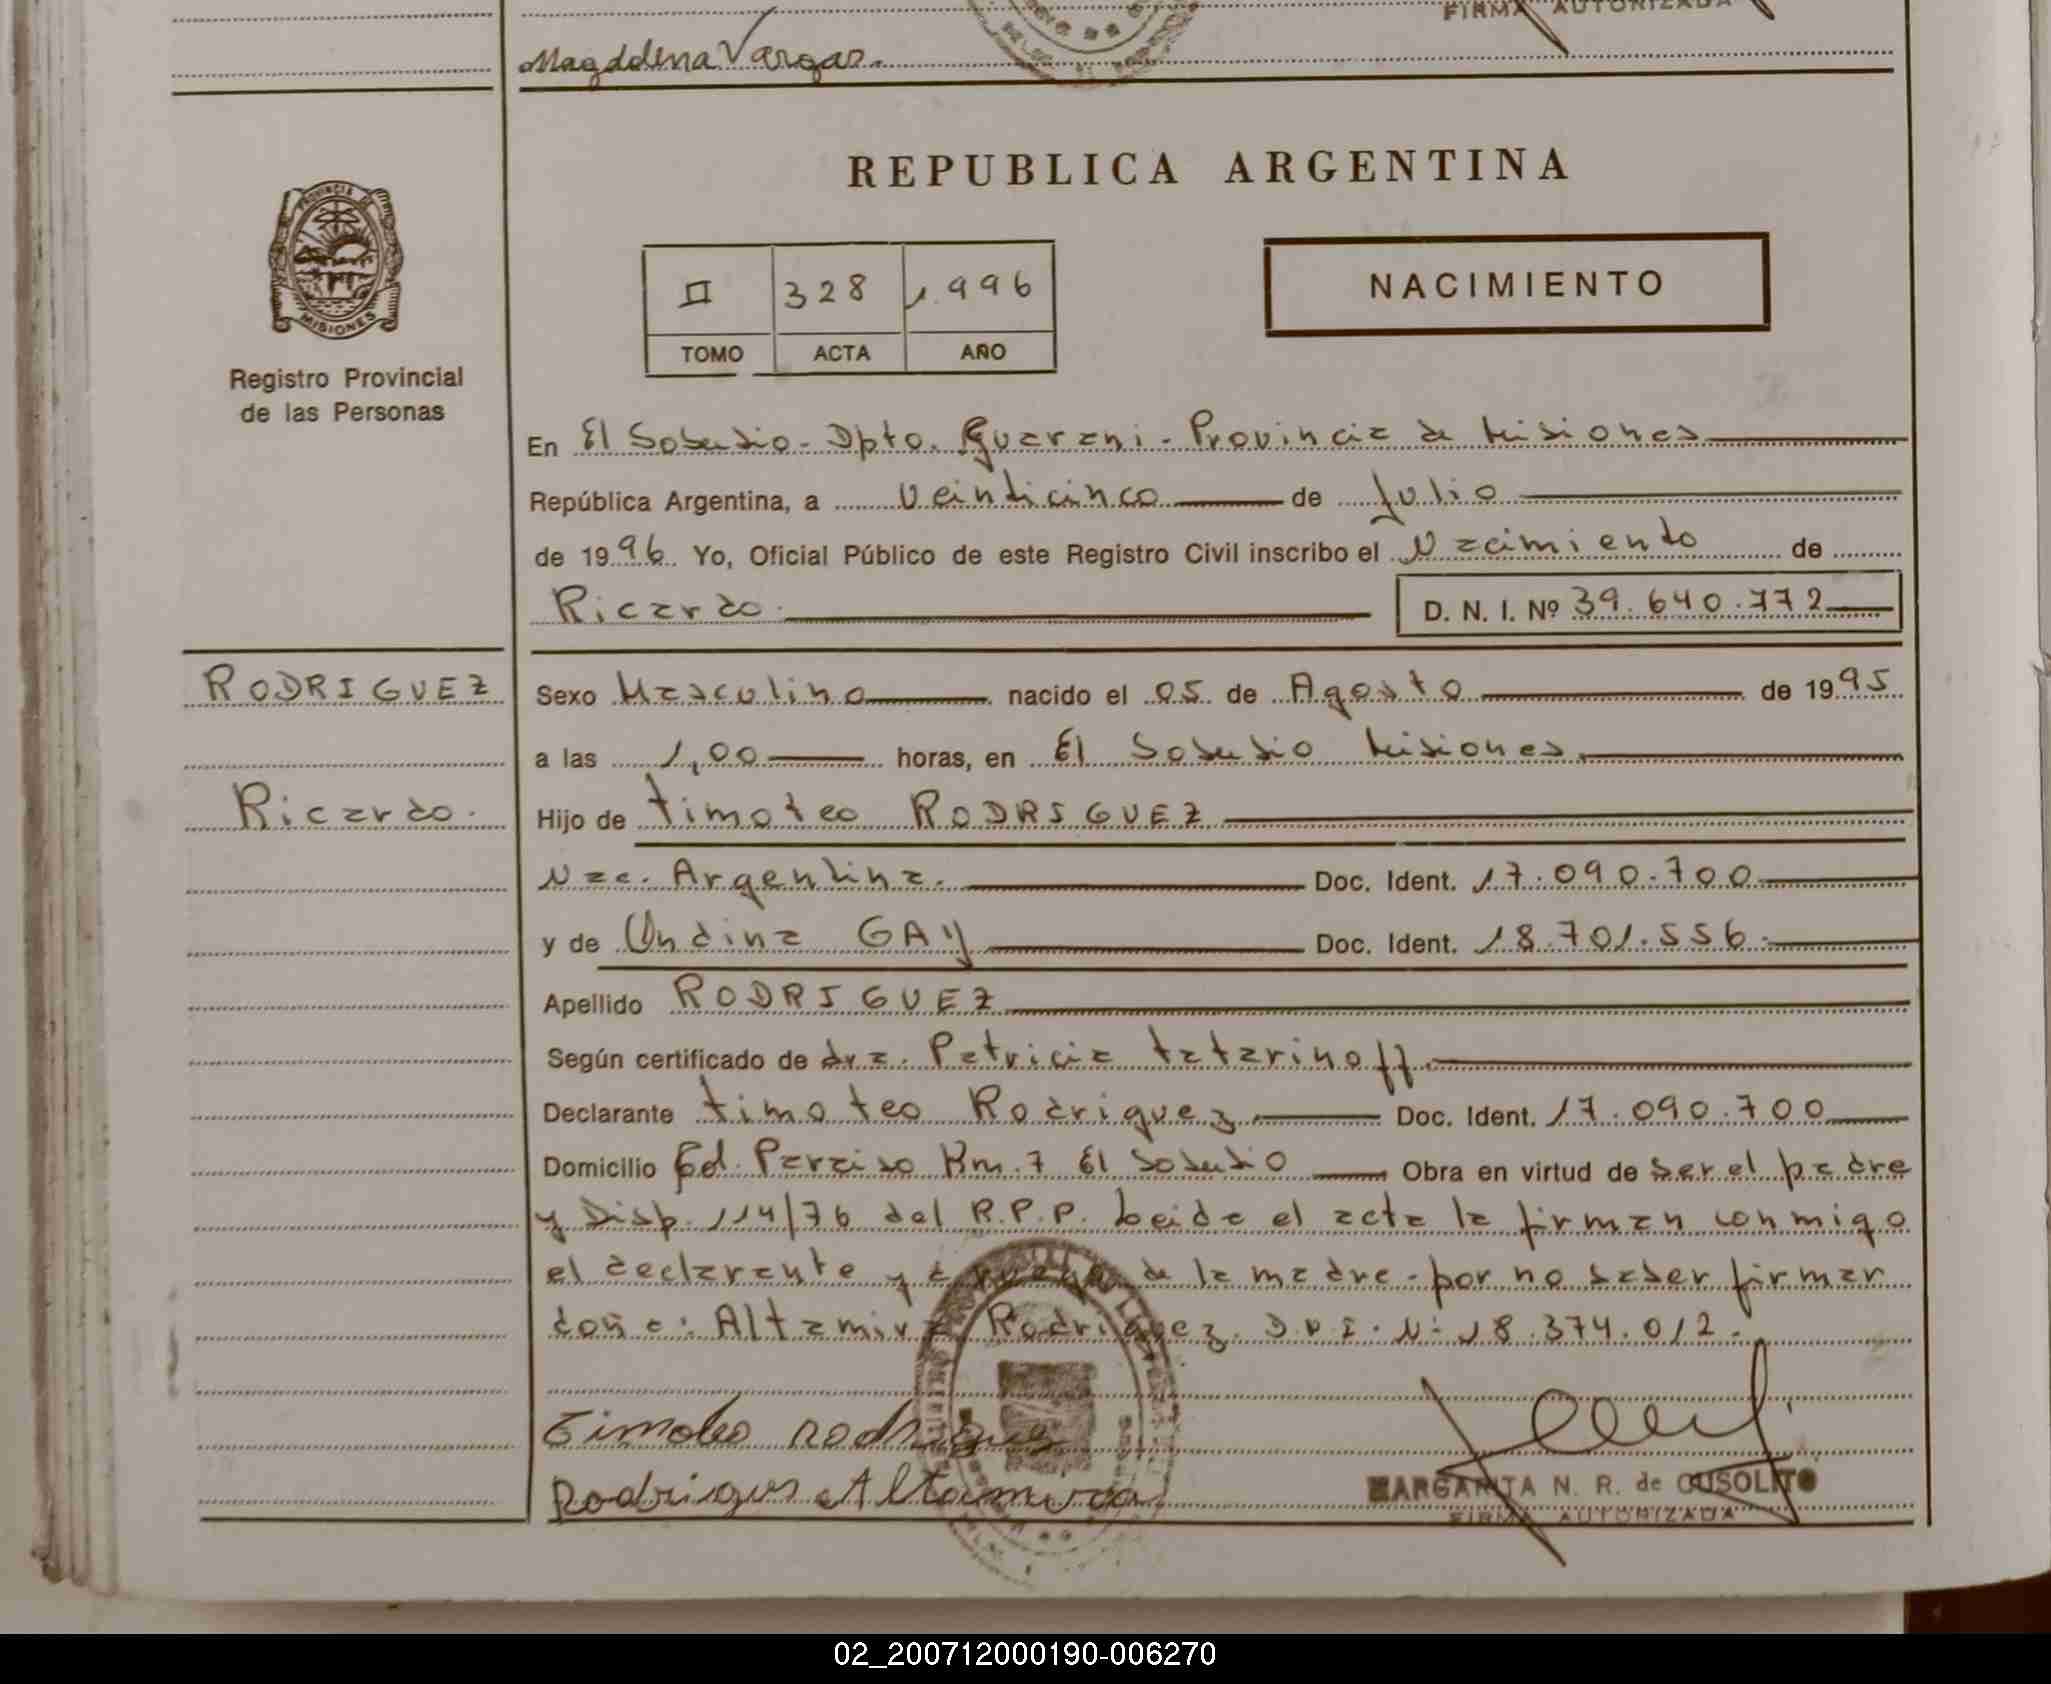 FIRMA AUTORIZADA
Magdelena Vargas.
REPUBLICA ARGENTINA
PROVINCIA DE
MISIONES
Registro Provincial
de las Personas
II 328 1.996
TOMO ACTA AÑO
NACIMIENTO
En El Soberbio - Dpto. Guarani - Provincia de Misiones
República Argentina, a veinticinco de Julio
de 1996 Yo, Oficial Público de este Registro Civil inscribo el Nacimiento de
Ricardo. D. N. I. Nº 39.640.772
RODRIGUEZ
Ricardo.
Sexo Masculino nacido el 05 de Agosto de 1995
a las 1,00 horas, en El Soberbio Misiones
Hijo de timoteo RODRIGUEZ
Nac. Argentina. Doc. Ident. 17.090.700
y de Undina GAY Doc. Ident. 18.701.556.
Apellido RODRIGUEZ
Según certificado de dra. Patricia tatarinoff.
Declarante timoteo Rodriguez Doc. Ident. 17.090.700
Domicilio Ed. Paraiso Km.7 El Soberbio Obra en virtud de ser el padre
y Disp. 114/76 del R.P.P. Leida el acta la firman conmigo
el declarante y a ruego de la madre - por no saber firmar
doña: Altamira Rodriguez D.N.I. Nº 18.374.012.
Timoteo rodrigue
Rodrigues Altamira
MARGARITA N. R. de CUSOLITO
FIRMA AUTORIZADA
02_200712000190-006270